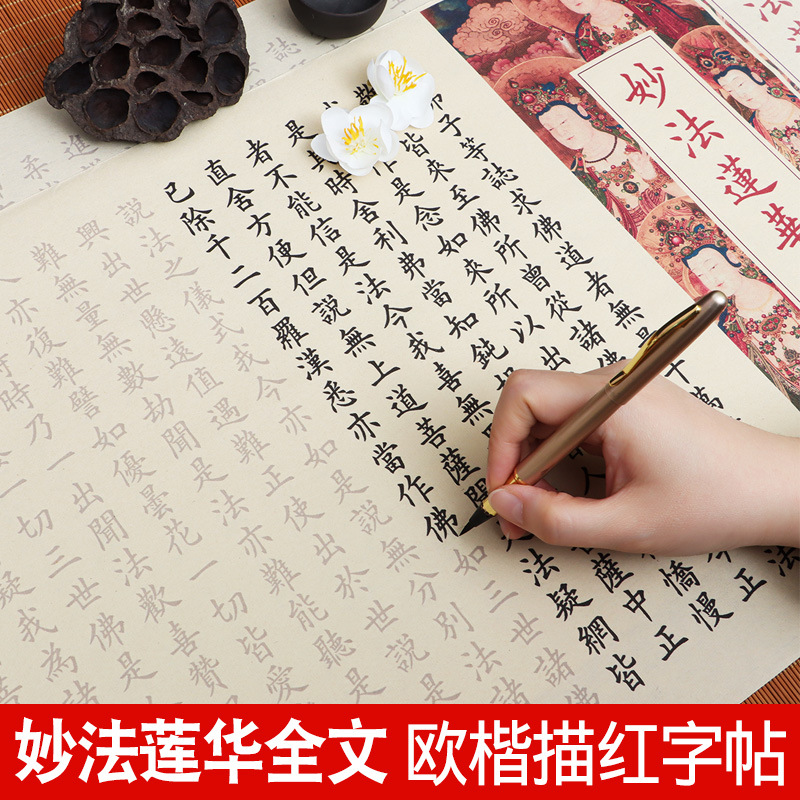 妙法蓮華
妙法
卯子等誌求佛道者無
千萬
皆來至佛所曾從諸佛
作是念如來所以出
是其時舍利弗當知鈍
憍慢
者不能信是法今我喜無
薩中正
直舍方便但說無上道菩薩聞
法疑網皆
已除千二百羅漢悉亦當作佛如三世諸佛
說法之儀式我今亦如是說無分別法諸
興出世懸遠值遇難正使出於世說
難無量無數劫聞是法亦難能聽是
亦復難譬如優曇花一切皆愛
時乃一出聞法歡喜讚
一切三世佛是
疑我為諸
妙法莲华全文 欧楷描红字帖